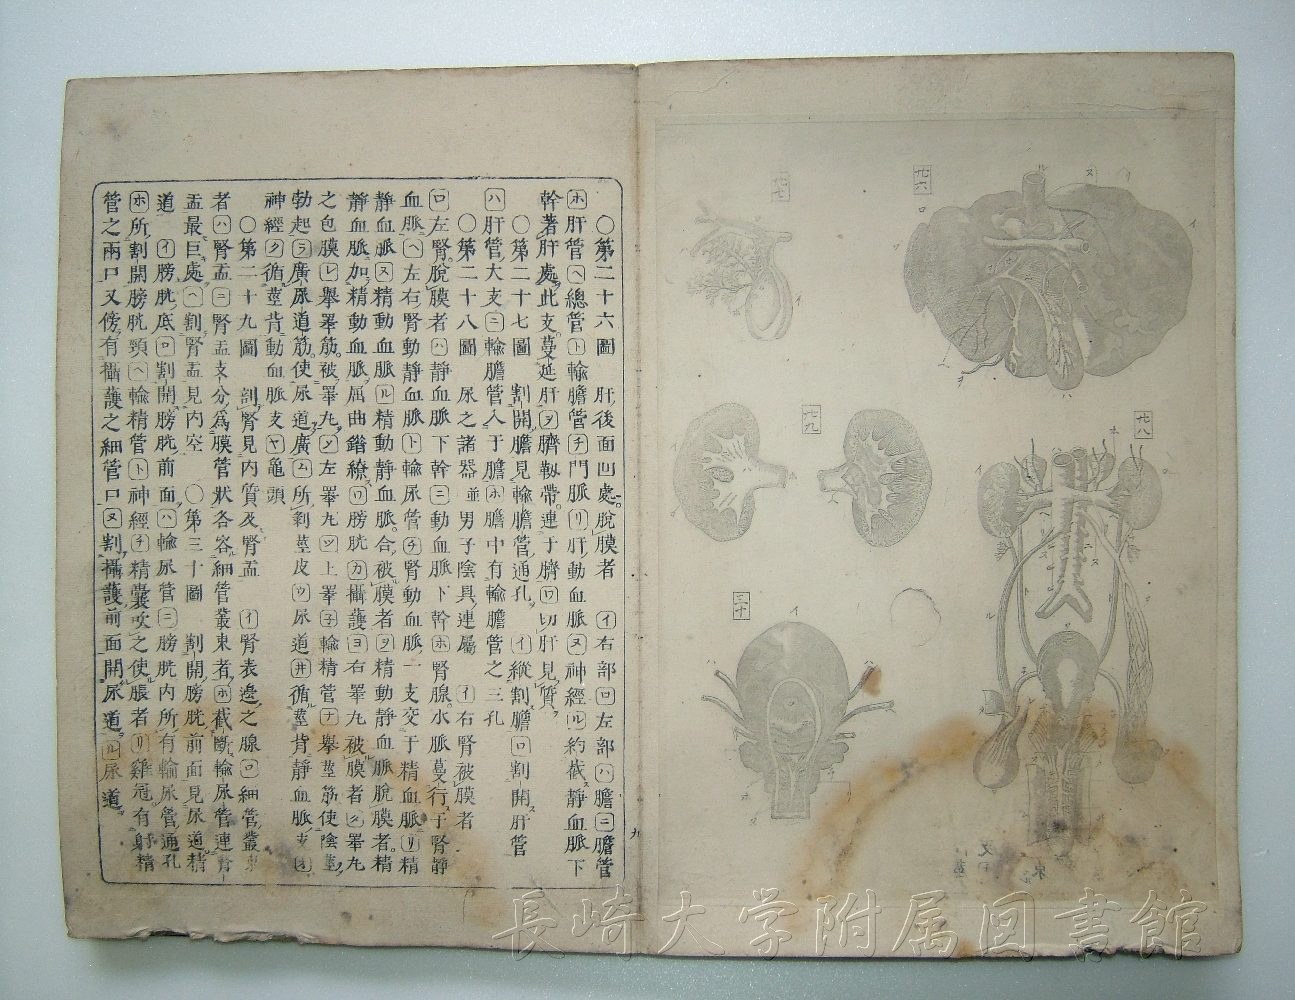 〇第二十六圖　肝後面凹處脫膜者　㋑右部㋺左部㋩膽㋥膽管
㋭肝管㋬總管㋣輸膽管㋠門脈㋷肝動血脈㋦神經㋸約截靜血脈下
幹著肝處此支蔓延肝㋾臍靱帶連于臍㋻切肝見質
〇第二十七圖　割開膽見輸膽管通孔　㋑縱割膽㋺割開肝管
㋩肝管大支㋥輸膽管入于膽㋭膽中有輸膽管之三孔
〇第二十八圖　尿之諸器並男子陰具連屬　㋑右腎被膜者
㋺左腎脫膜者㋩靜血脈下幹㋥動血脈下幹㋭腎腺水脈蔓行于腎靜
血脈㋬左右腎動靜血脈㋣輸尿管㋠腎動血脈一支交于精血脈㋷精
靜血脈㋦精動血脈㋸精動靜血脈合被膜者㋾精動靜血脈脫膜者精
靜血脈加精動血脈屈曲繚㋻膀胱㋕攝護㋵右睪丸被膜者睪丸
之包膜㋹擧睪筋被睪丸左睪丸上睪㋧輸精管㋤擧莖筋使陰莖
勃起㋶廣尿道筋使尿道廣㋰所剝莖皮尿道㋼循莖背靜血脈支
神經㋗循莖背動血脈支㋳龜頭
〇第二十九圖　剖腎見內質及腎盂　㋑腎表邊之腺㋺細管叢
者㋩腎盂㋥腎盂支分爲膜管狀各容細管叢束者㋭截斷輸尿管連
盂最巨處㋬割腎盂見內空　〇第三十圖　割開膀胱前面見尿道精
道　㋑膀胱底㋺割開膀胱前面㋩輸尿管㋥膀胱內所有輸尿管通孔
㋭所割開膀胱頸㋬輸精管㋣神經㋠精囊吹之使脹者㋷雞冠有射精
管之兩口又傍有攝護之細管口㋦割攝護前面開尿道㋸尿道
九
廿六
廿七
廿八
廿九
三十
長崎大学附属図書館